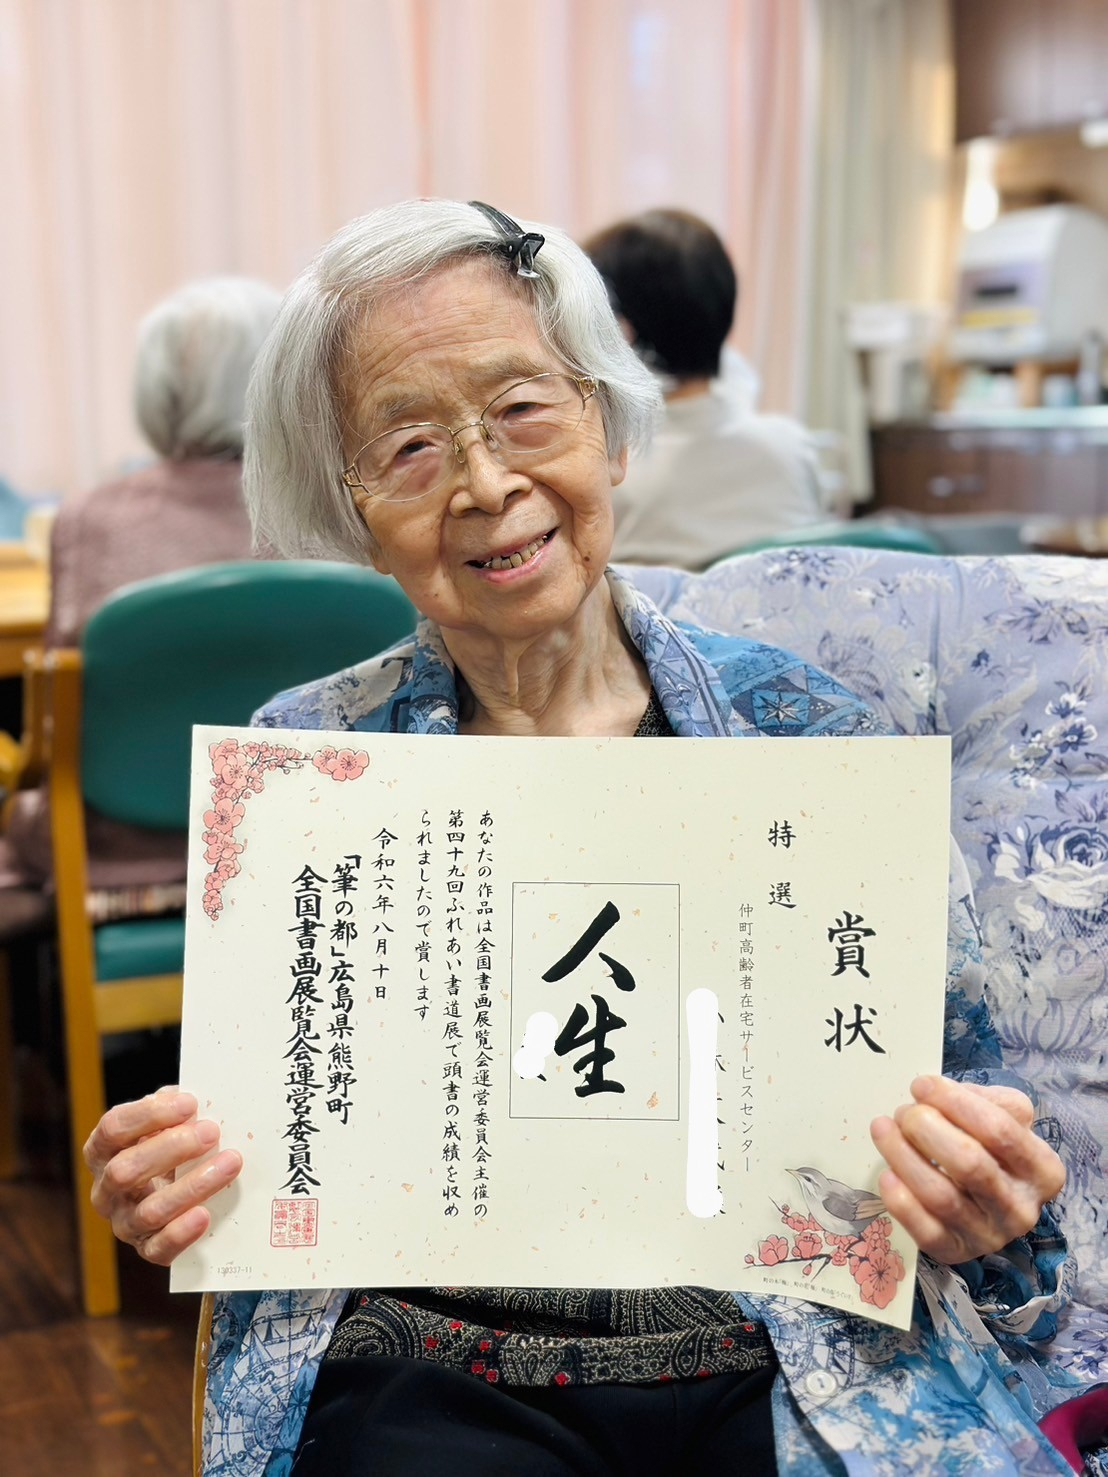 賞状
特選
仲町高齢者在宅サービスセンター
人生
あなたの作品は全国書画展覧会運営委員会主催の
第四十九回ふれあい書道展で頭書の成績を収め
られましたので賞します
令和六年八月十日
「筆の都」広島県熊野町
全国書画展覧会運営委員会